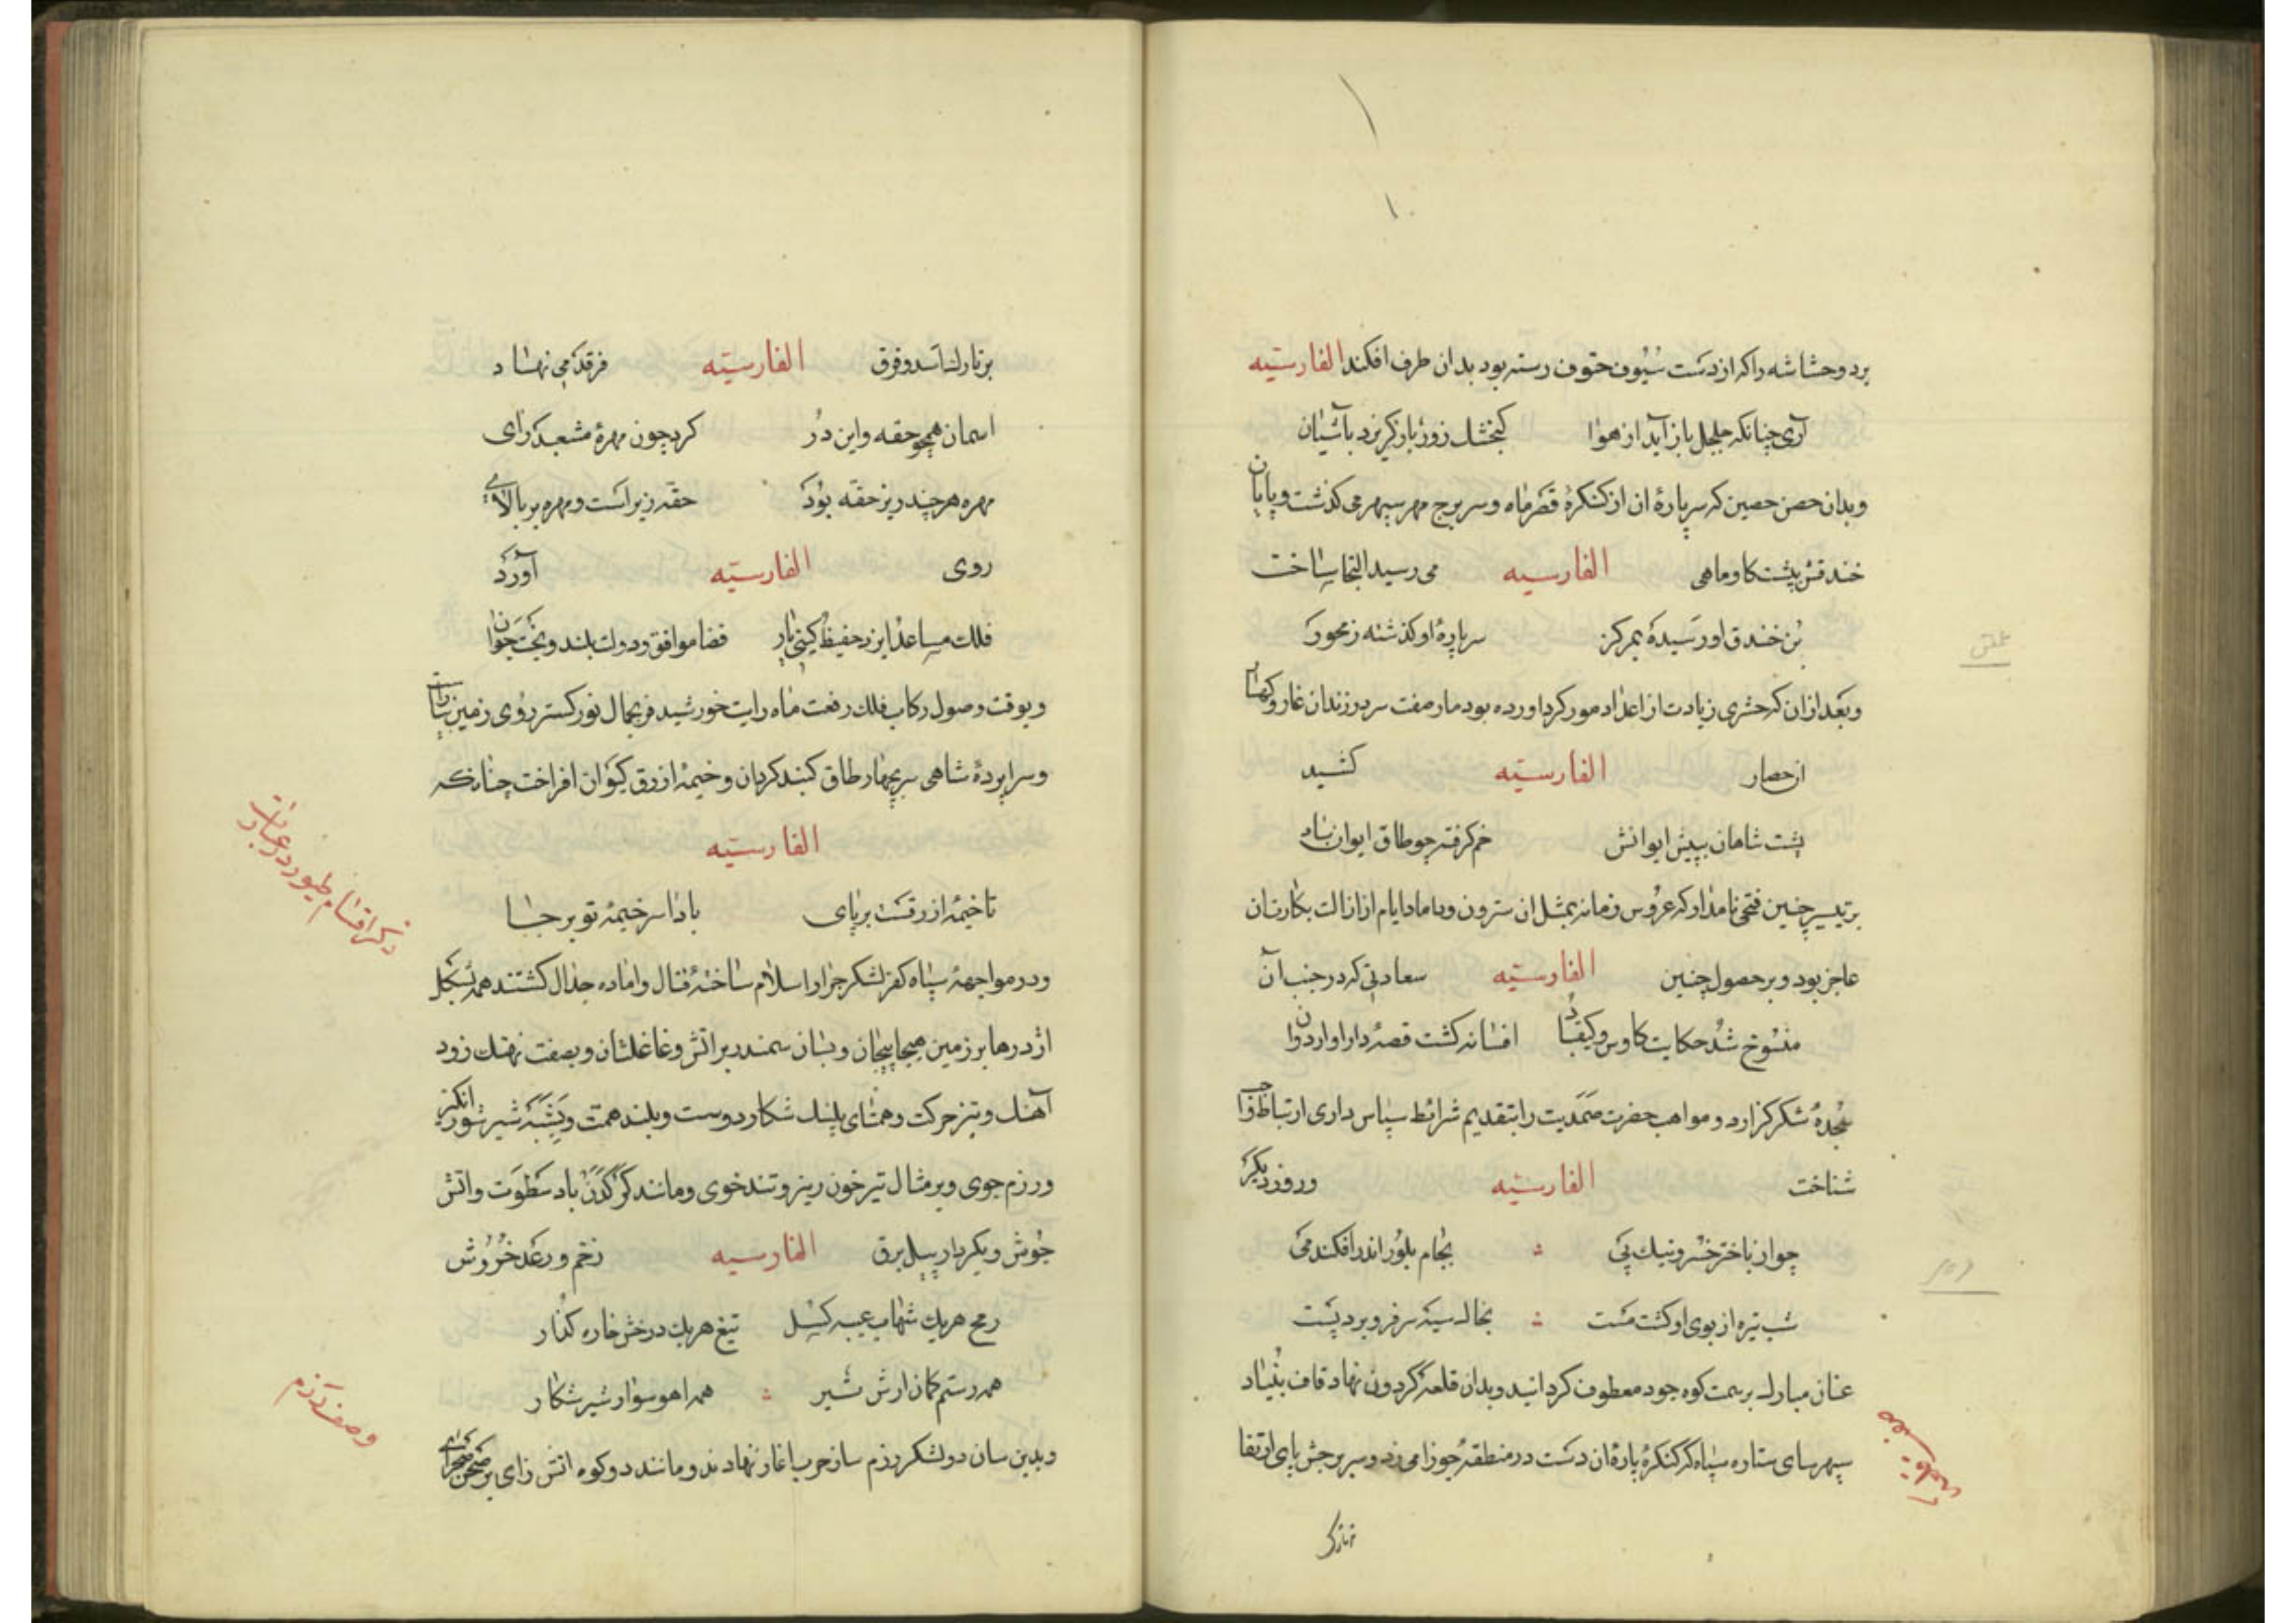 برد و حشاشه را که از دست سیوف حتوف رسته بود بدان طرف افکند الفارسیّه
آری چنانکه جلجل باز آید از هوا گنجشک زورباز گریزد بآشیان
وبدان حصن حصین که سر بارهٔ ان از کنکرهٔ قصر ماه وسر برج مهر سپهر می کذشت و پایان
خندقش پشت کاو ماهی الفارسیه می رسید التجا ساخت
بُن خندق او رسیده بمرکز سر بارهٔ او کذشته ز محور
وبعد ازان که حشری زیادت از اعداد مور کرد اورده بود مار صفت سر در زندان غار و کهسار
از حصار الفارسیّه کشید
پشت شاهان بپیش ایوانش خم کرفته چو طاق ایوان باد
بر تیسیر چنین فتحی نامدار که عروس زمانه بمثل ان سترون وداماد ایام از ازالت بکارت ان
عاجز بود و بر حصول چنین الفارسیّه سعادتی که در جنب آن
منسوخ شد حکایت کاوس و کیقباد افسانه کشت قصهٔ دارا و اردوان
سجدهٔ شکر کزارد و مواهب حضرت صمدیت را بتقدیم شرائط سپاس داری ارتباط واجب
شناخت الفارسیّه و روز دیگر
چو از باختر خسرو نیک پی بجام بلور اندر افکند می
شب تیره از بوی او کشت مست بخاک سیه سر فرو برد پست
عنان مبارک بر سمت کوه جود معطوف کردانید وبدان قلعهٔ گردون نهاد قاف بنیاد
سپهرسای ستاره سپاه که کنکرهٔ بارهٔ ان دست در منطقهٔ جوزا می زد وسر برجش پای ارتقا
بر تارک اسد و فرق الفارسیّه فرقد می نهاد
اسمان همچو حقه و این دز کرد چون مهرهٔ مشعبد رای
مهره هر چند زیر حقه بود حقّه زیر است و مهره بر بالای
روی الفارسیّه آورد
فلک مساعد ایزد حفیظ گیتی یار قضا موافق و دولت بلند و بخت جوان
وبوقت وصول رکاب فلک رفعت ماه رایت خورشید فر بجمال نور کستر روی زمین بیاراست
وسراپردهٔ شاهی بر چهار طاق کنبد کردان و خیمهٔ ازرق کیوان افراخت چنانکه
الفارسیّه
تا خیمهٔ ازرقست بر پای بادا سر خیمهٔ تو بر جا
ودر مواجههٔ سپاه کفر لشکر جرار اسلام ساختهٔ قتال واماده جدال کشتند همه بشکل
اژدرها بر زمین هیجا پیچان و بسان سمندر بر اتش وغا غلتان و بصفت نهنک زود
آهنک و تیز حرکت و همتای پلنک شکار دوست و بلند همت و بشبه شیر شورانکیز
ورزم جوی و بر مثال تیر خون ریز و تند خوی و مانند کرکدن باد سطوت و اتش
جوش و بکردار پیل برق الفارسیه زخم و رعد خروش
رمح هر یک شهاب عیبه کسل تیغ هر یک درخش خاره کذار
همه رستم کمان ارش تیر همه اهو سوار شیر شکار
وبدین سان دو لشکر رزم ساز حرب اغاز نهادند و مانند دو کوه اتش زای بر صحن صحرای
ذکر اقسام طیور در عبارت
وصف رزم